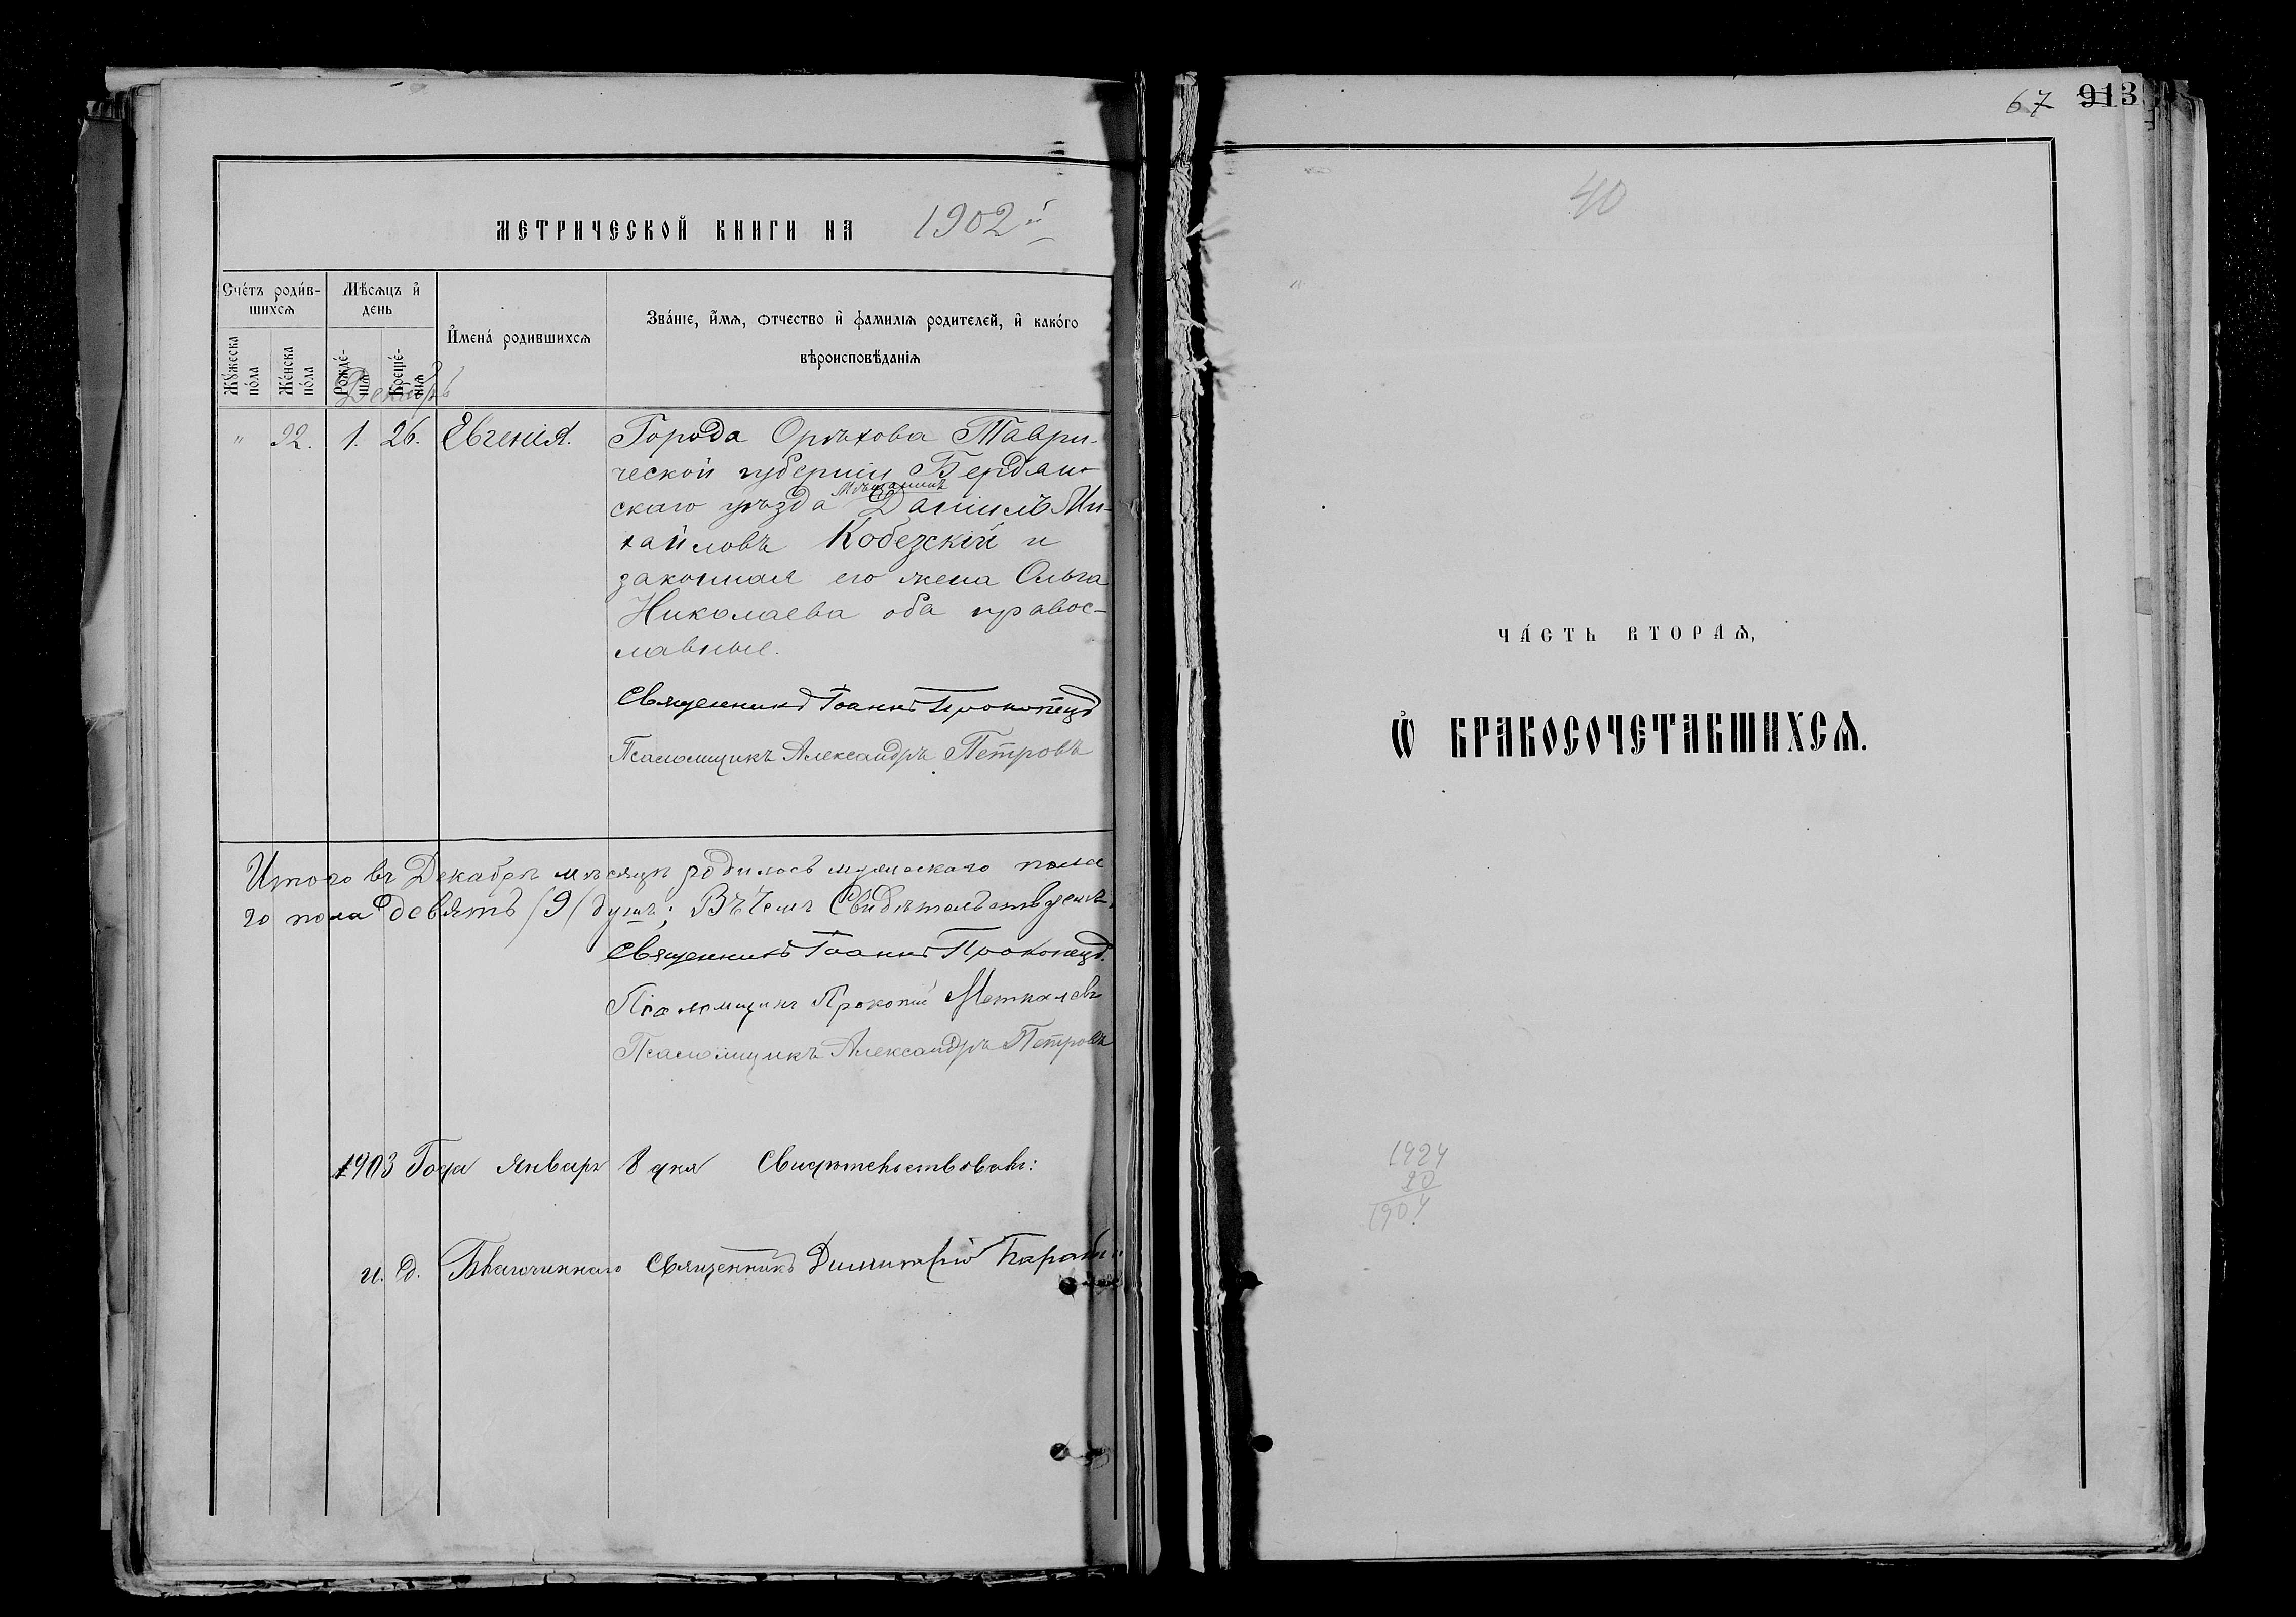 МЕТРИЧЕСКОЙ КНИГИ НА 1902 й
Сче́тъ роди́вшихсѧ
Мѣсѧцъ и҆ день
И҆мена́ родившихсѧ
Зва́нїе, и҆́мѧ, ѻтчество и҆ фамилїѧ родителей, и҆ како́го
вѣроисповѣданїѧ
Мꙋ́жеска по́ла
Же́нска по́ла
Рожде́нїѧ
Креще́нїѧ
Декабрь
" 92. 1. 26. Евгенія.
Города Орѣхова Таври-
ческой губерніи Бердян-
скаго уѣзда Мѣщанинъ Даніилъ Ми-
хайловъ Кобезскій и
законная его жена Ольга
Николаева оба правос-
лавные.
Священникъ Іоаннъ Прокопецъ
Псаломщикъ Александръ Петровъ
Итого въ Декабрѣ мѣсяцѣ родилось мужескаго пола
го пола девять /9/ душъ; Въ чемъ Свидѣтельствуемъ.
Священникъ Іоаннъ Прокопецъ.
Псаломщикъ Прокопій
Псаломщикъ Александръ Петровъ
1903 Года Январь 8 дня Свидѣтельствовалъ:
и. д. Благочиннаго Священникъ Димитрій
67 913
40
ЧА́СТЬ ВТОРАѦ,
Ѽ БРАКОСОЧЕТАВШИХСѦ.
1924
20
1904